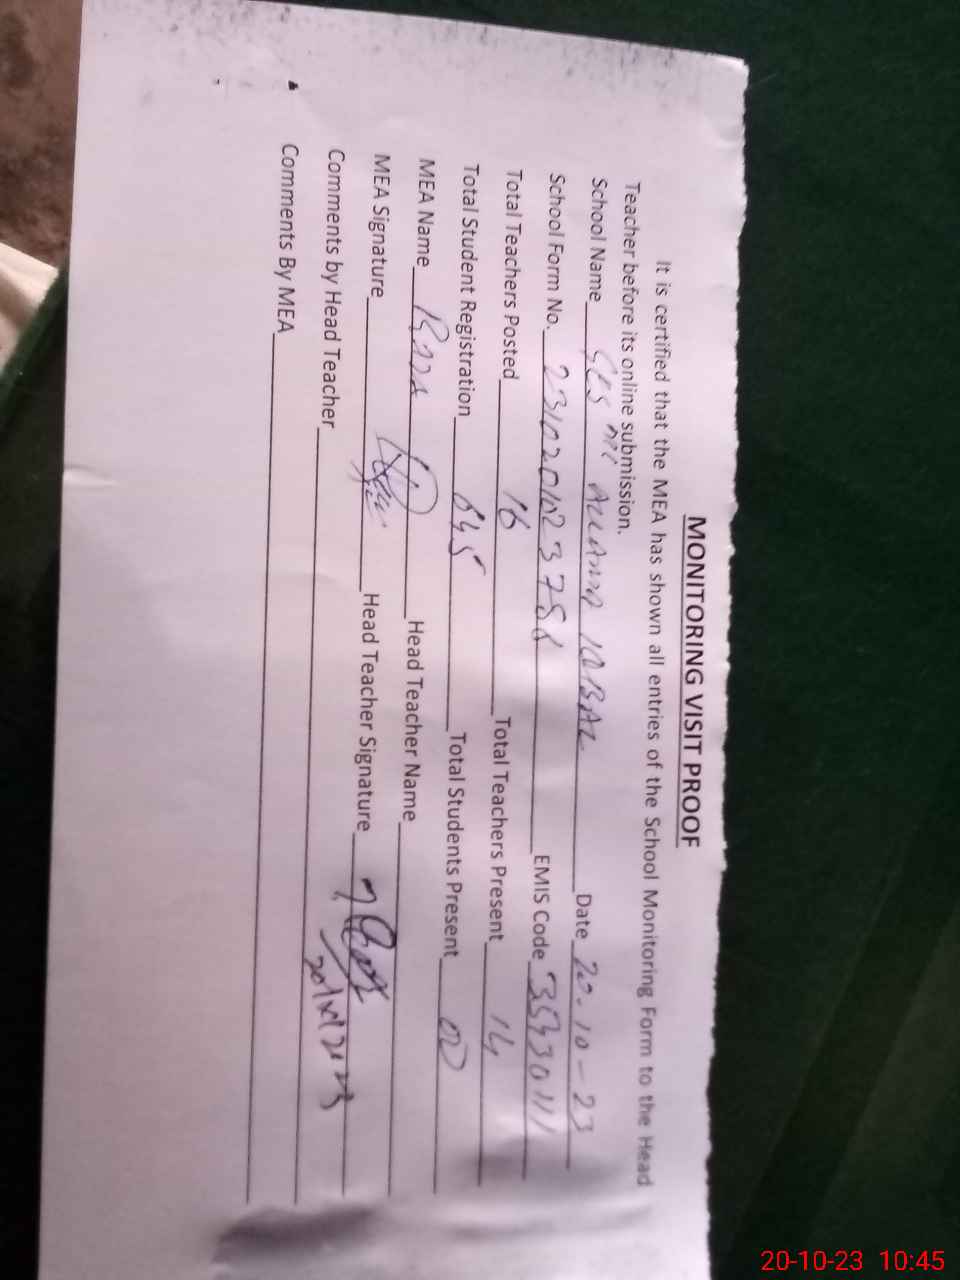 MONITORING VISIT PROOF
It is certified that the MEA has shown all entries of the School Monitoring Form to the Head
Teacher before its online submission.
School Name ALLAMA IQBAL Date 20-10-23
School Form No. EMIS Code 35330111
Total Teachers Posted 16 Total Teachers Present 14
Total Student Registration 645 Total Students Present 00
MEA Name Head Teacher Name
MEA Signature Head Teacher Signature
Comments by Head Teacher
Comments By MEA
20-10-23 10:45